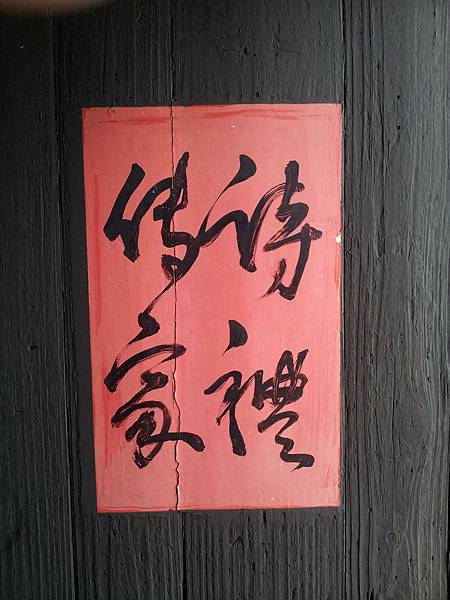 詩禮
傳家